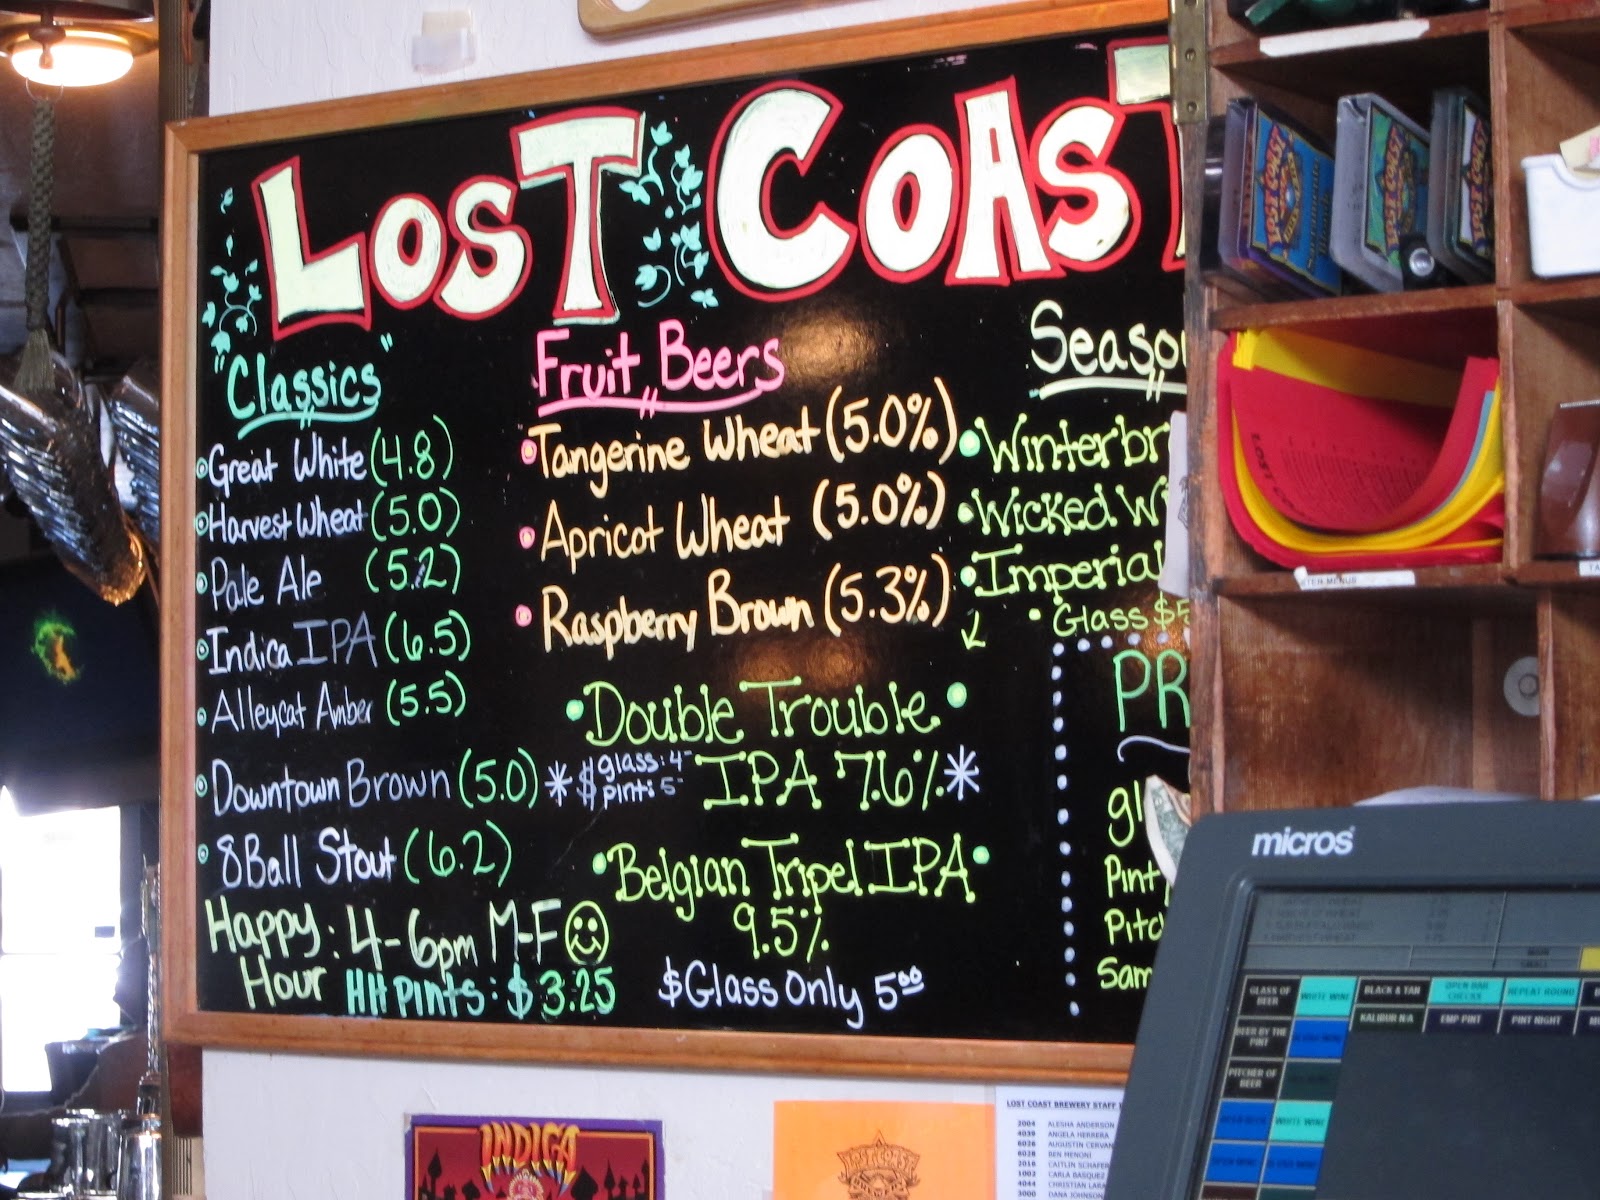 LOST COAST
"Classics"
Great White (4.8)
Harvest Wheat (5.0)
Pale Ale (5.2)
Indica IPA (6.5)
Alleycat Amber (5.5)
Downtown Brown (5.0)
8 Ball Stout (6.2)
Happy Hour: 4-6pm M-F
HH Pints: $3.25
Fruit Beers
Tangerine Wheat (5.0%)
Apricot Wheat (5.0%)
Raspberry Brown (5.3%)
Double Trouble
IPA 7.6%
$ glass: 4-
pint: 5-
Belgian Tripel IPA
9.5%
$ Glass Only 5.00
Seaso
Winterbr
Wicked Wi
Imperial
Glass $5
PR
gl
Pint
Pitc
Sam
LOST COAST
LOST COAST
micros
GLASS OF BEER
WHITE WINE
BLACK & TAN
OPEN BAR CHECKS
REPEAT ROUND
KALIBUR N/A
EMP PINT
PINT NIGHT
BEER BY THE PINT
PITCHER OF BEER
WHITE WINE
INDICA
LOST COAST
LOST COAST BREWERY STAFF
2004 ALESHA ANDERSON
4039 ANGELA HERRERA
6026 AUGUSTIN CERVAN
6028 BEN MENONI
2016 CAITLIN SCHAFER
1002 CARLA BASQUEZ
4044 CHRISTIAN LARA
3000 DANA JOHNSON